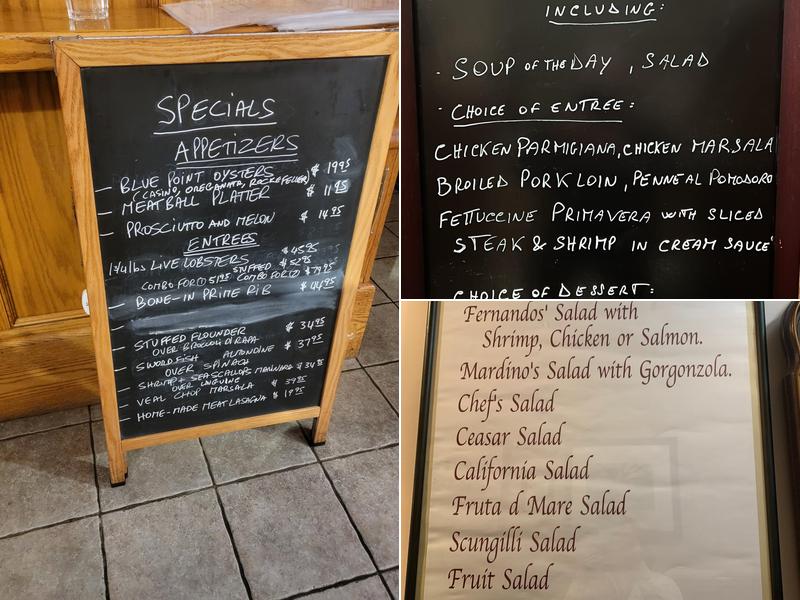 SPECIALS
APPETIZERS
— BLUE POINT OYSTERS $ 19.95
(CASINO, OREGANATA, ROCKEFELLER)
— MEATBALL PLATTER $ 11.95
— PROSCIUTTO AND MELON $ 14.95
ENTREES
1¼ lbs LIVE LOBSTERS $45.95
STUFFED $52.95
COMBO FOR ① 51.95 COMBO FOR ② $79.95
— BONE-IN PRIME RIB $ 44.95
STUFFED FLOUNDER $ 34.95
OVER BROCCOLI DI RAPA
SWORDFISH $ 37.95
OVER SPINACH
SHRIMP & SEA SCALLOPS MARINARA $ 34.95
OVER LINGUINE
— VEAL CHOP MARSALA $ 39.95
— HOME-MADE MEAT LASAGNA $ 19.95
INCLUDING:
· SOUP OF THE DAY , SALAD
· CHOICE OF ENTREE :
CHICKEN PARMIGIANA, CHICKEN MARSALA
BROILED PORK LOIN , PENNE AL POMODORO
FETTUCCINE PRIMAVERA WITH SLICED
STEAK & SHRIMP IN CREAM SAUCE
CHOICE OF DESSERT:
Fernandos' Salad with
Shrimp, Chicken or Salmon.
Mardino's Salad with Gorgonzola.
Chef's Salad
Ceasar Salad
California Salad
Fruta d Mare Salad
Scungilli Salad
Fruit Salad